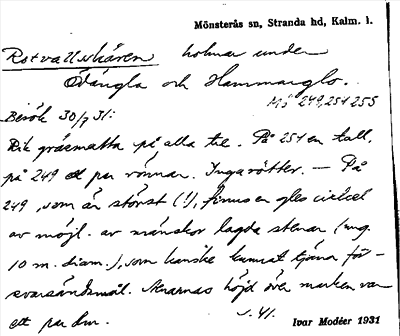 Mönsterås sn, Stranda hd, Kalm. l.
Rotvallskären holmar under
Ödängla och Hammarglo.
Mö 249, 254 255
Besök 30/7 31:
Rik gräsmatta på alla tre. På 254 en tall,
på 249 ett par rönnar. Inga rötter. — På
249, som är störst (!), finnes en gles cirkel
av möjl. av människor lagda stenar (ung.
10 m. diam.), som kanske kunnat tjäna för-
svarsändamål. Stenarnas höjd över marken var
ett par dm.
Ivar Modéer 1931